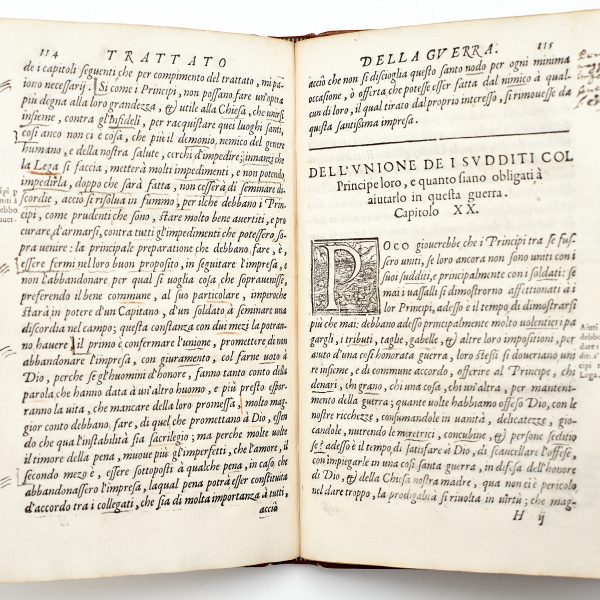 114 TRATTATO
de i capitoli seguenti che per compimento del trattato, mi pa-
iono necessarij. Si come i Principi, non possano fare un'opra
più degna alla loro grandezza, & utile alla Chiesa, che unirsi
insieme, contra gl'Infideli, per racquistare quei luoghi santi,
così anco non ci è cosa, che più il demonio, nemico del genere
humano, e della nostra salute, cerchi d'impedire; innanzi che
la Lega si faccia, metterà molti impedimenti, e non potendo
impedirla, doppo che sarà fatta, non cesserà di seminare di-
scordie, acciò si risolua in fummo, per ilche debbano i Princi-
pi, come prudenti che sono, stare molto bene auertiti, e pro-
curare, d'armarsi, contra tutti gl'impedimenti che potessero so-
pra uenire: la principale preparatione che debbano fare, è,
essere fermi nel loro buon proposito, in seguitare l'impresa, e
non l'abbandonare per qual si uoglia cosa che soprauenisse,
preferendo il bene commune, al suo particolare, imperoche
starà in potere d'un Capitano, ò d'un soldato à seminar una
discordia nel campo; questa constanza con duoi mezi la potran-
no hauere. il primo è confermare l'unione, promettere di non
abbandonare l'impresa, con giuramento, col farne uoto à
Dio, perche se gl'huomini d'honore, fanno tanto conto della
parola che hanno data à un'altro huomo, e più presto espor-
ranno la uita, che mancare della loro promessa, molto mag-
gior conto debbano fare, di quel che promettano à Dio, essen-
do che qua l'instabilità sia sacrilegio; ma perche molte uolte
il timore della pena, muoue più gl'imperfetti, che l'amore, il
secondo mezo è, essere sottoposti à qualche pena, in caso, che
abbandonassero l'impresa, laqual pena potrà esser constituita
d'accordo tra i collegati, che sia di molta importanza à tutti,
acciò
DELLA GVERRA. 115
acciò che non si discioglia questo santo nodo per ogni minima
occasione, ò offerta che potesse esser fatta dal nimico à qual-
cun di loro, il qual tirato dal proprio interesso, si rimouesse da
questa santissima impresa.
DELL'VNIONE DE I SVDDITI COL
Principe loro, e quanto siano obligati à
aiutarlo in questa guerra.
Capitolo XX.
POCO giouerebbe che i Principi tra se fus-
sero uniti, se loro ancora non sono uniti con i
suoi sudditi, e principalmente con i soldati: se
mai i uassalli si dimostrorno affettionati a i
lor Principi, adesso è il tempo di dimostrarsi
più che mai: debbano adesso principalmente molto uolentieri pa-
gargli, i tributi, taghe, gabelle, & altre loro impositioni, per
aiuto d'una così honorata guerra, loro stessi si doueriano uni-
re insieme, e di commune accordo, offerire al Principe, chi
denari, chi grano, chi una cosa, chi un'altra, per manteni-
mento della guerra; quante uolte habbiamo offeso Dio, con le
nostre ricchezze, consumandole in vanità, delicatezze, gio-
candole, nutrendo le meretrici, concubine, & persone seditio
se? adesso è il tempo di satisfare à Dio, di scancellare l'offese,
con impiegarle in una così santa guerra, in difesa dell'honore
di Dio, & della Chiesa nostra madre, qua non ci è pericolo
nel dare troppo, la prodigalità si riuolta in virtù; che mag-
H ij
Aiuti
debbo
dare i
diti a'
tipi n
Lega.